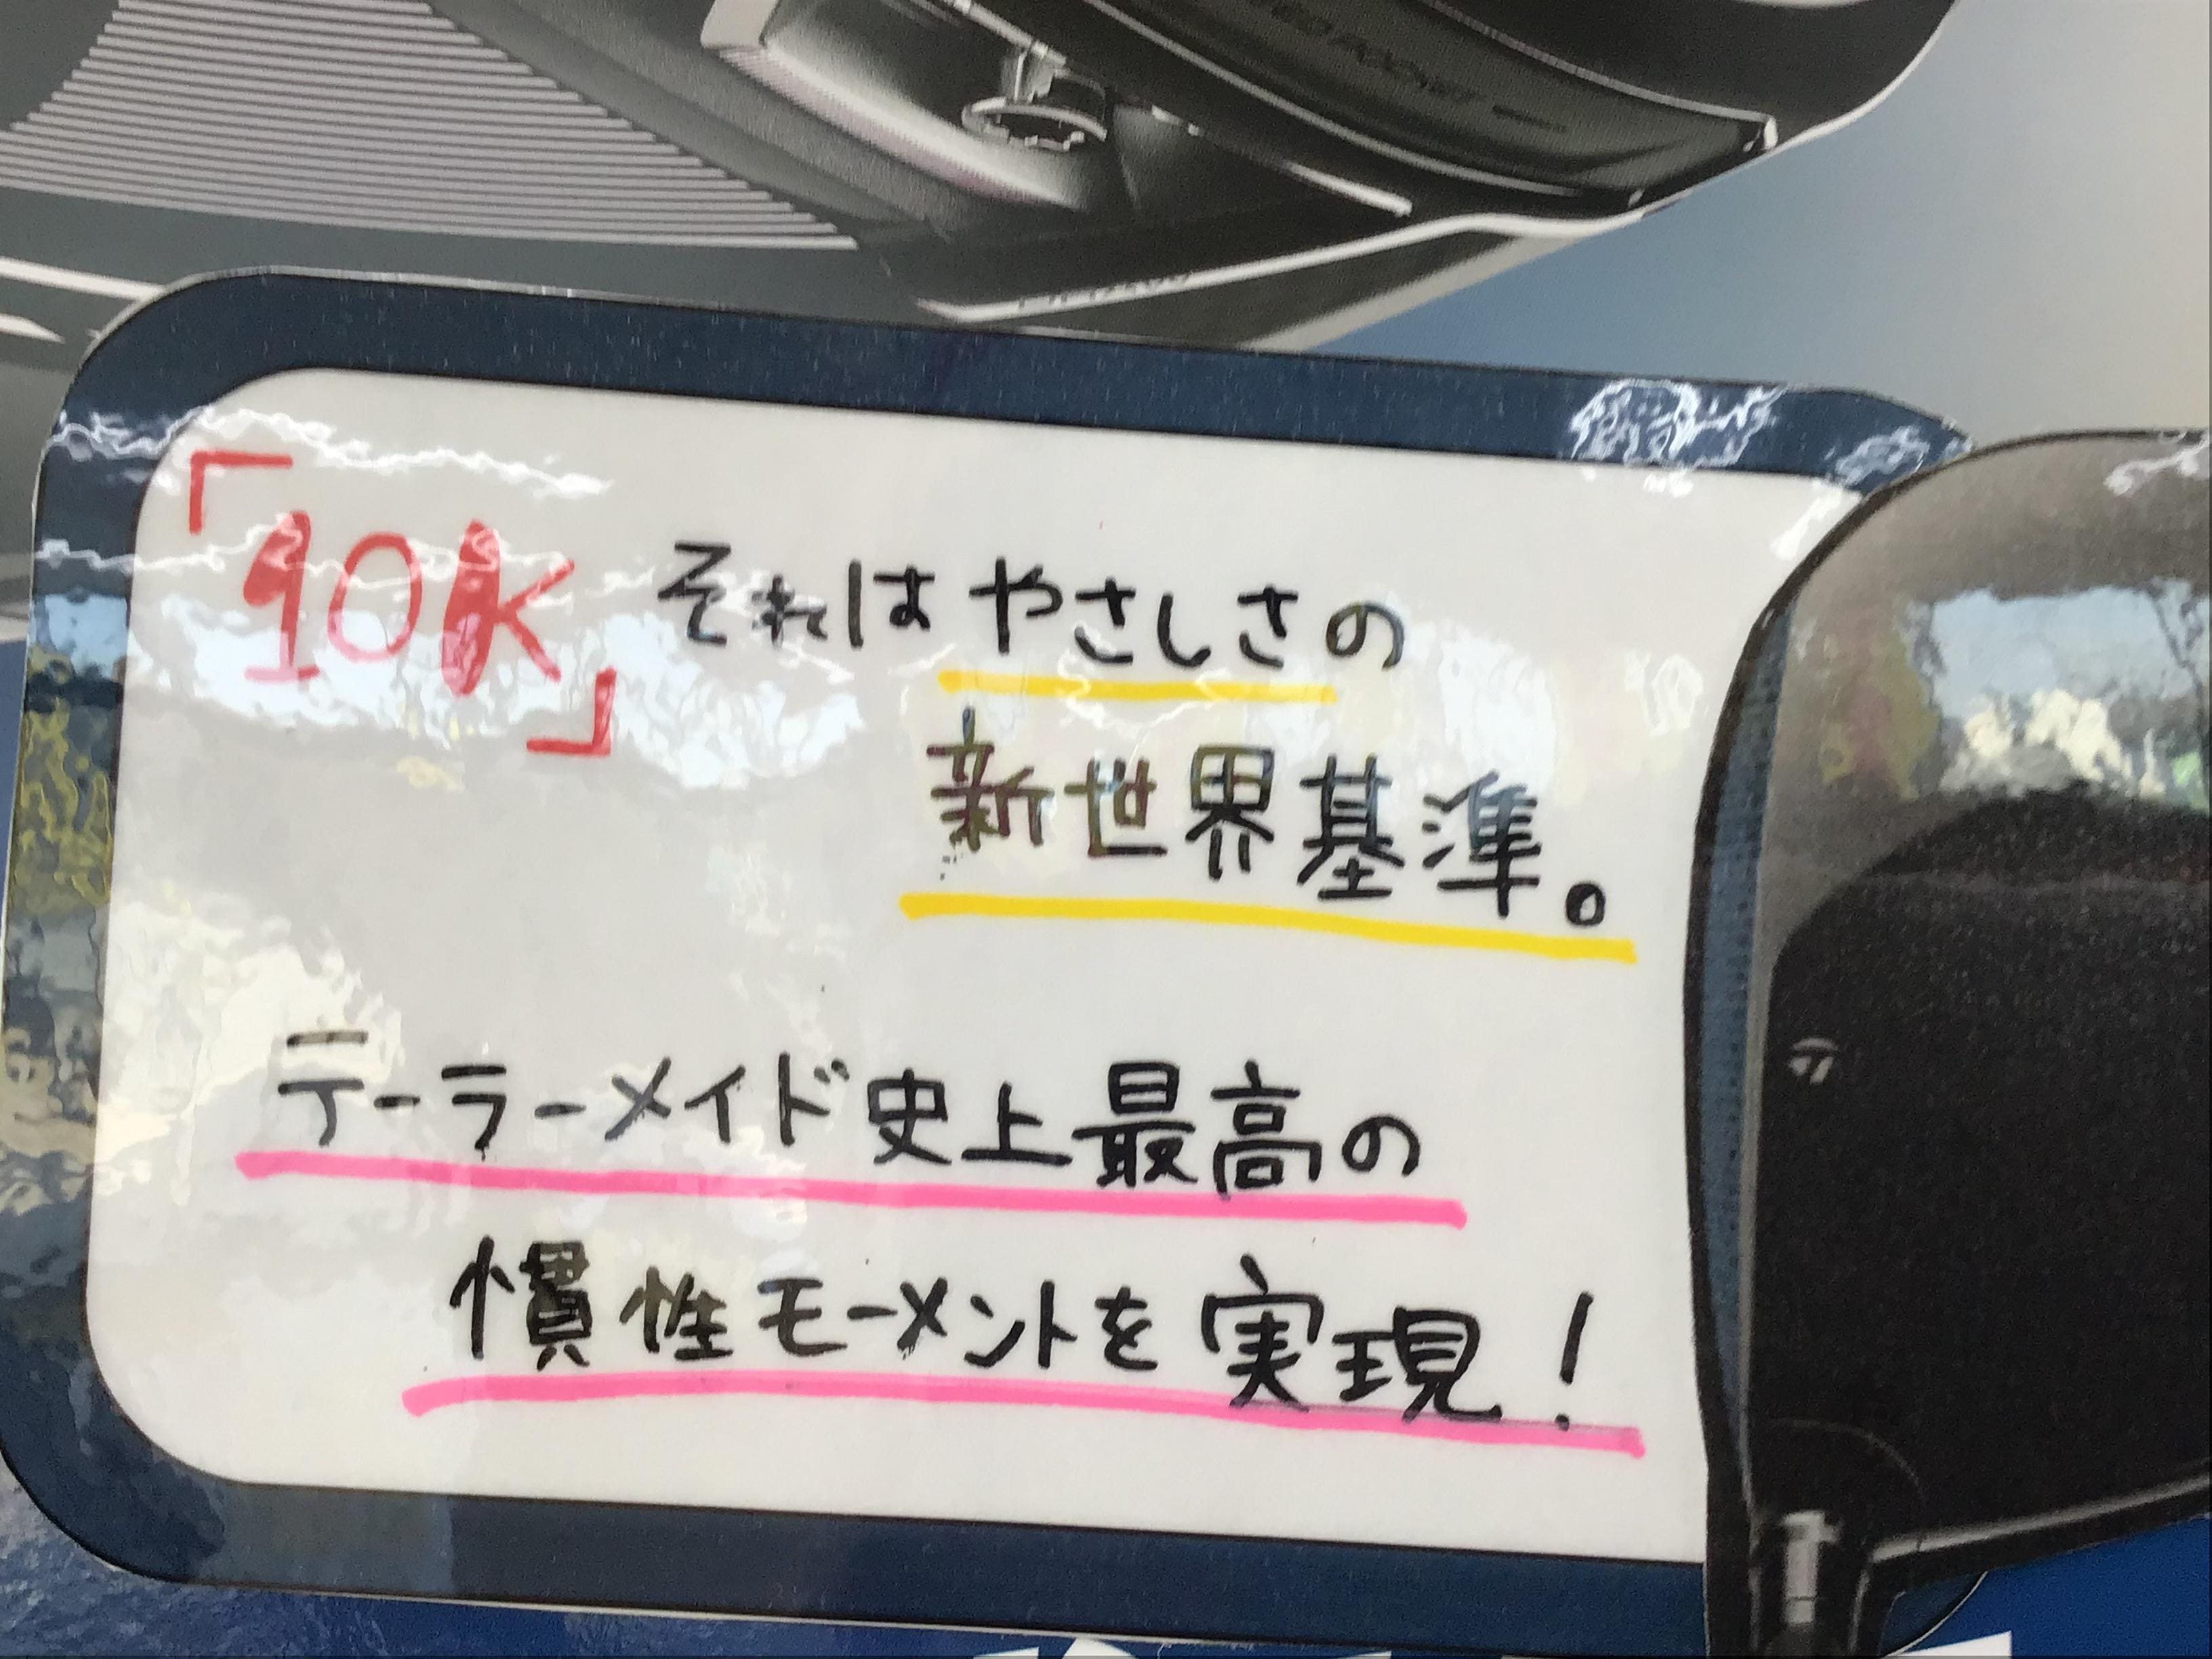 「10K」それはやさしさの
新世界基準。
テーラーメイド史上最高の
慣性モーメントを実現!